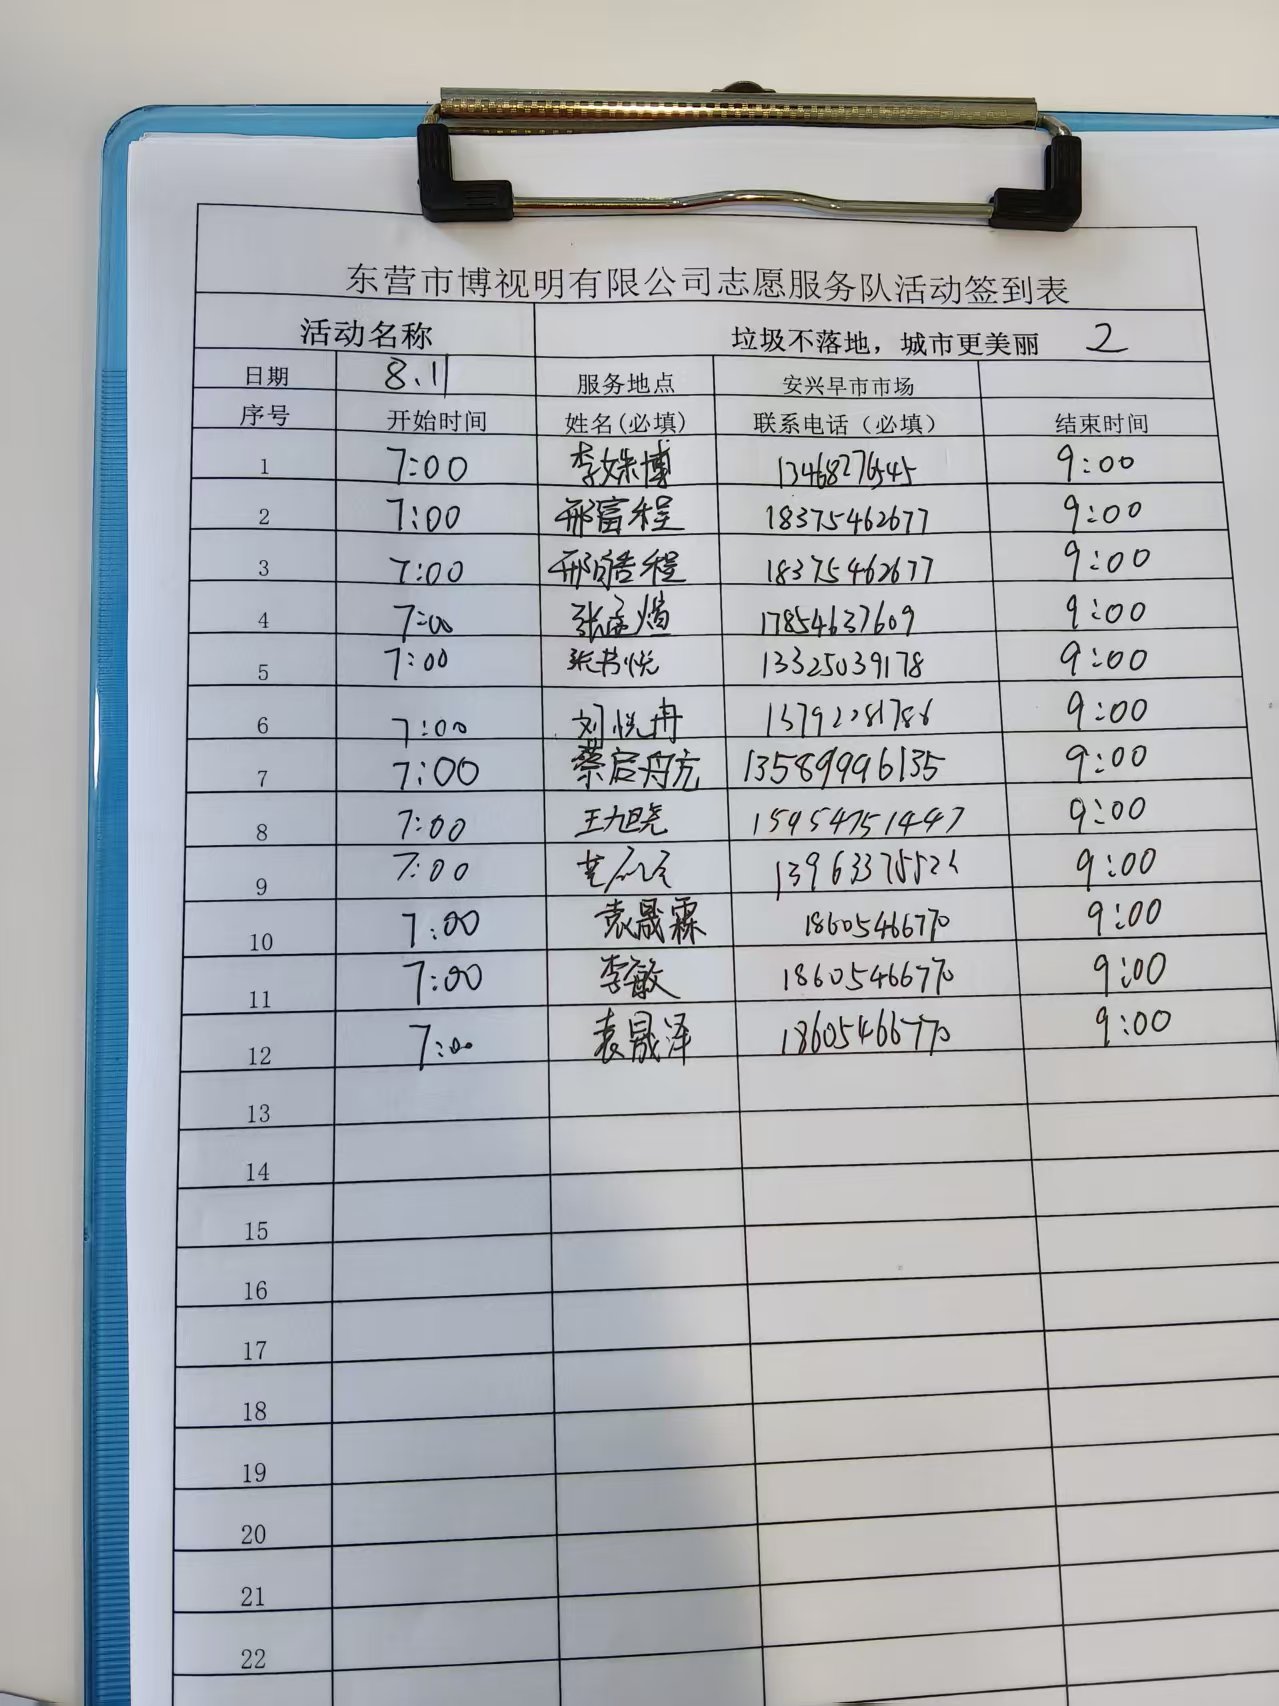 东营市博视明有限公司志愿服务队活动签到表
活动名称 垃圾不落地，城市更美丽 2
日期 8.11 服务地点 安兴早市市场
序号 开始时间 姓名(必填) 联系电话（必填） 结束时间
1 7:00 李姝博 13468276545 9:00
2 7:00 邢富程 18375462677 9:00
3 7:00 邢皓程 18375462677 9:00
4 7:00 张孟煊 17854637609 9:00
5 7:00 张书悦 13325039178 9:00
6 7:00 刘悦冉 13792281786 9:00
7 7:00 蔡启舟 13589996135 9:00
8 7:00 王旭尧 15954751447 9:00
9 7:00 9:00
10 7:00 袁晟霖 18605466770 9:00
11 7:00 李敏 18605466770 9:00
12 7:00 袁晟泽 18605466770 9:00
13
14
15
16
17
18
19
20
21
22